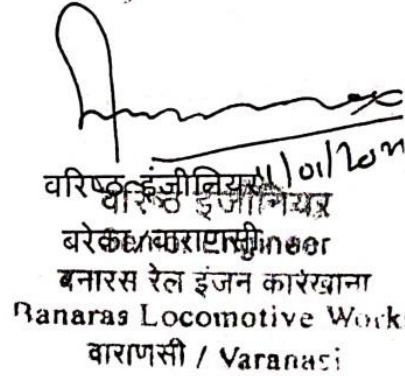 11/01/20
वरिष्ठ इंजीनियर
वरिष्ठ इंजीनियर
बरेका/वाराणसी
Engineer
बनारस रेल इंजन कारखाना
Banaras Locomotive Work
वाराणसी / Varanasi